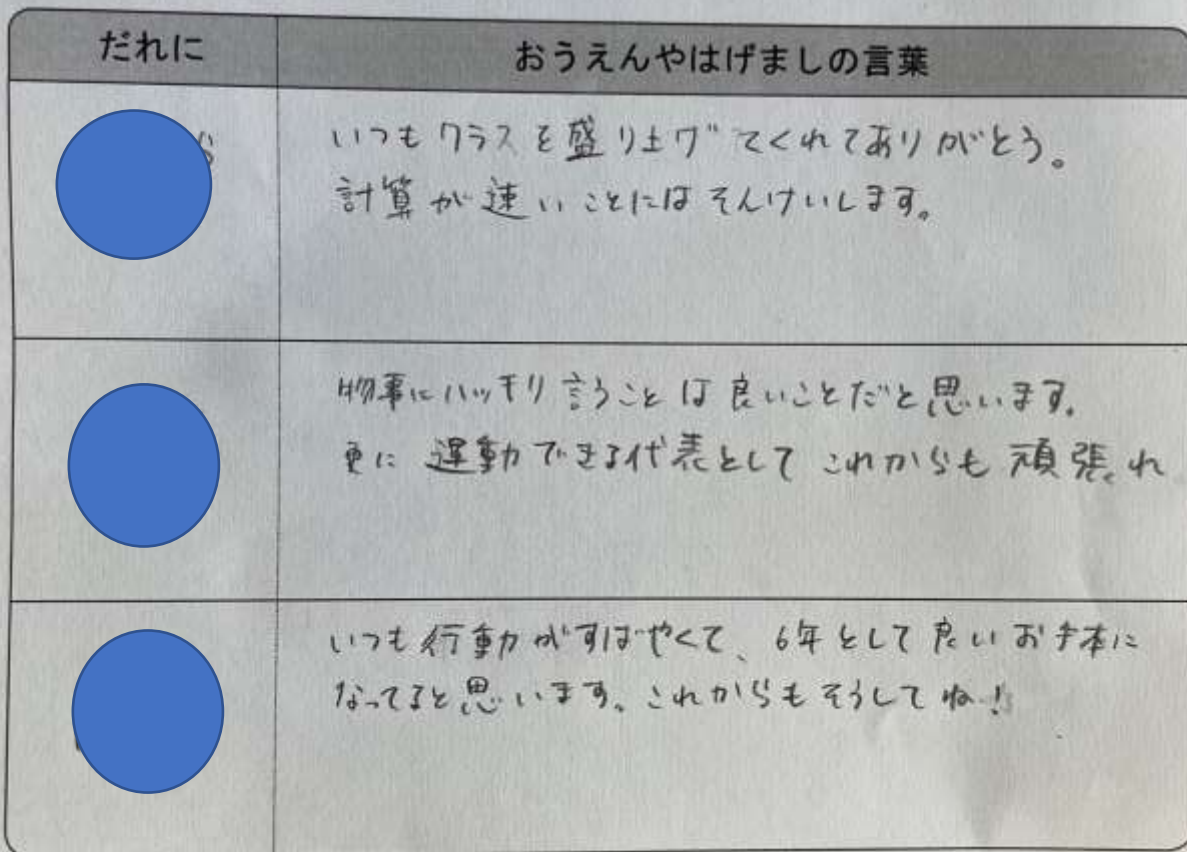 だれに
おうえんやはげましの言葉
いつもクラスを盛り上げてくれてありがとう。
計算が速いことにはそんけいします。
物事にハッキリ言うことは良いことだと思います。
更に運動できる代表としてこれからも頑張れ
いつも行動がすばやくて、6年として良いお手本に
なってると思います。これからもそうしてね!